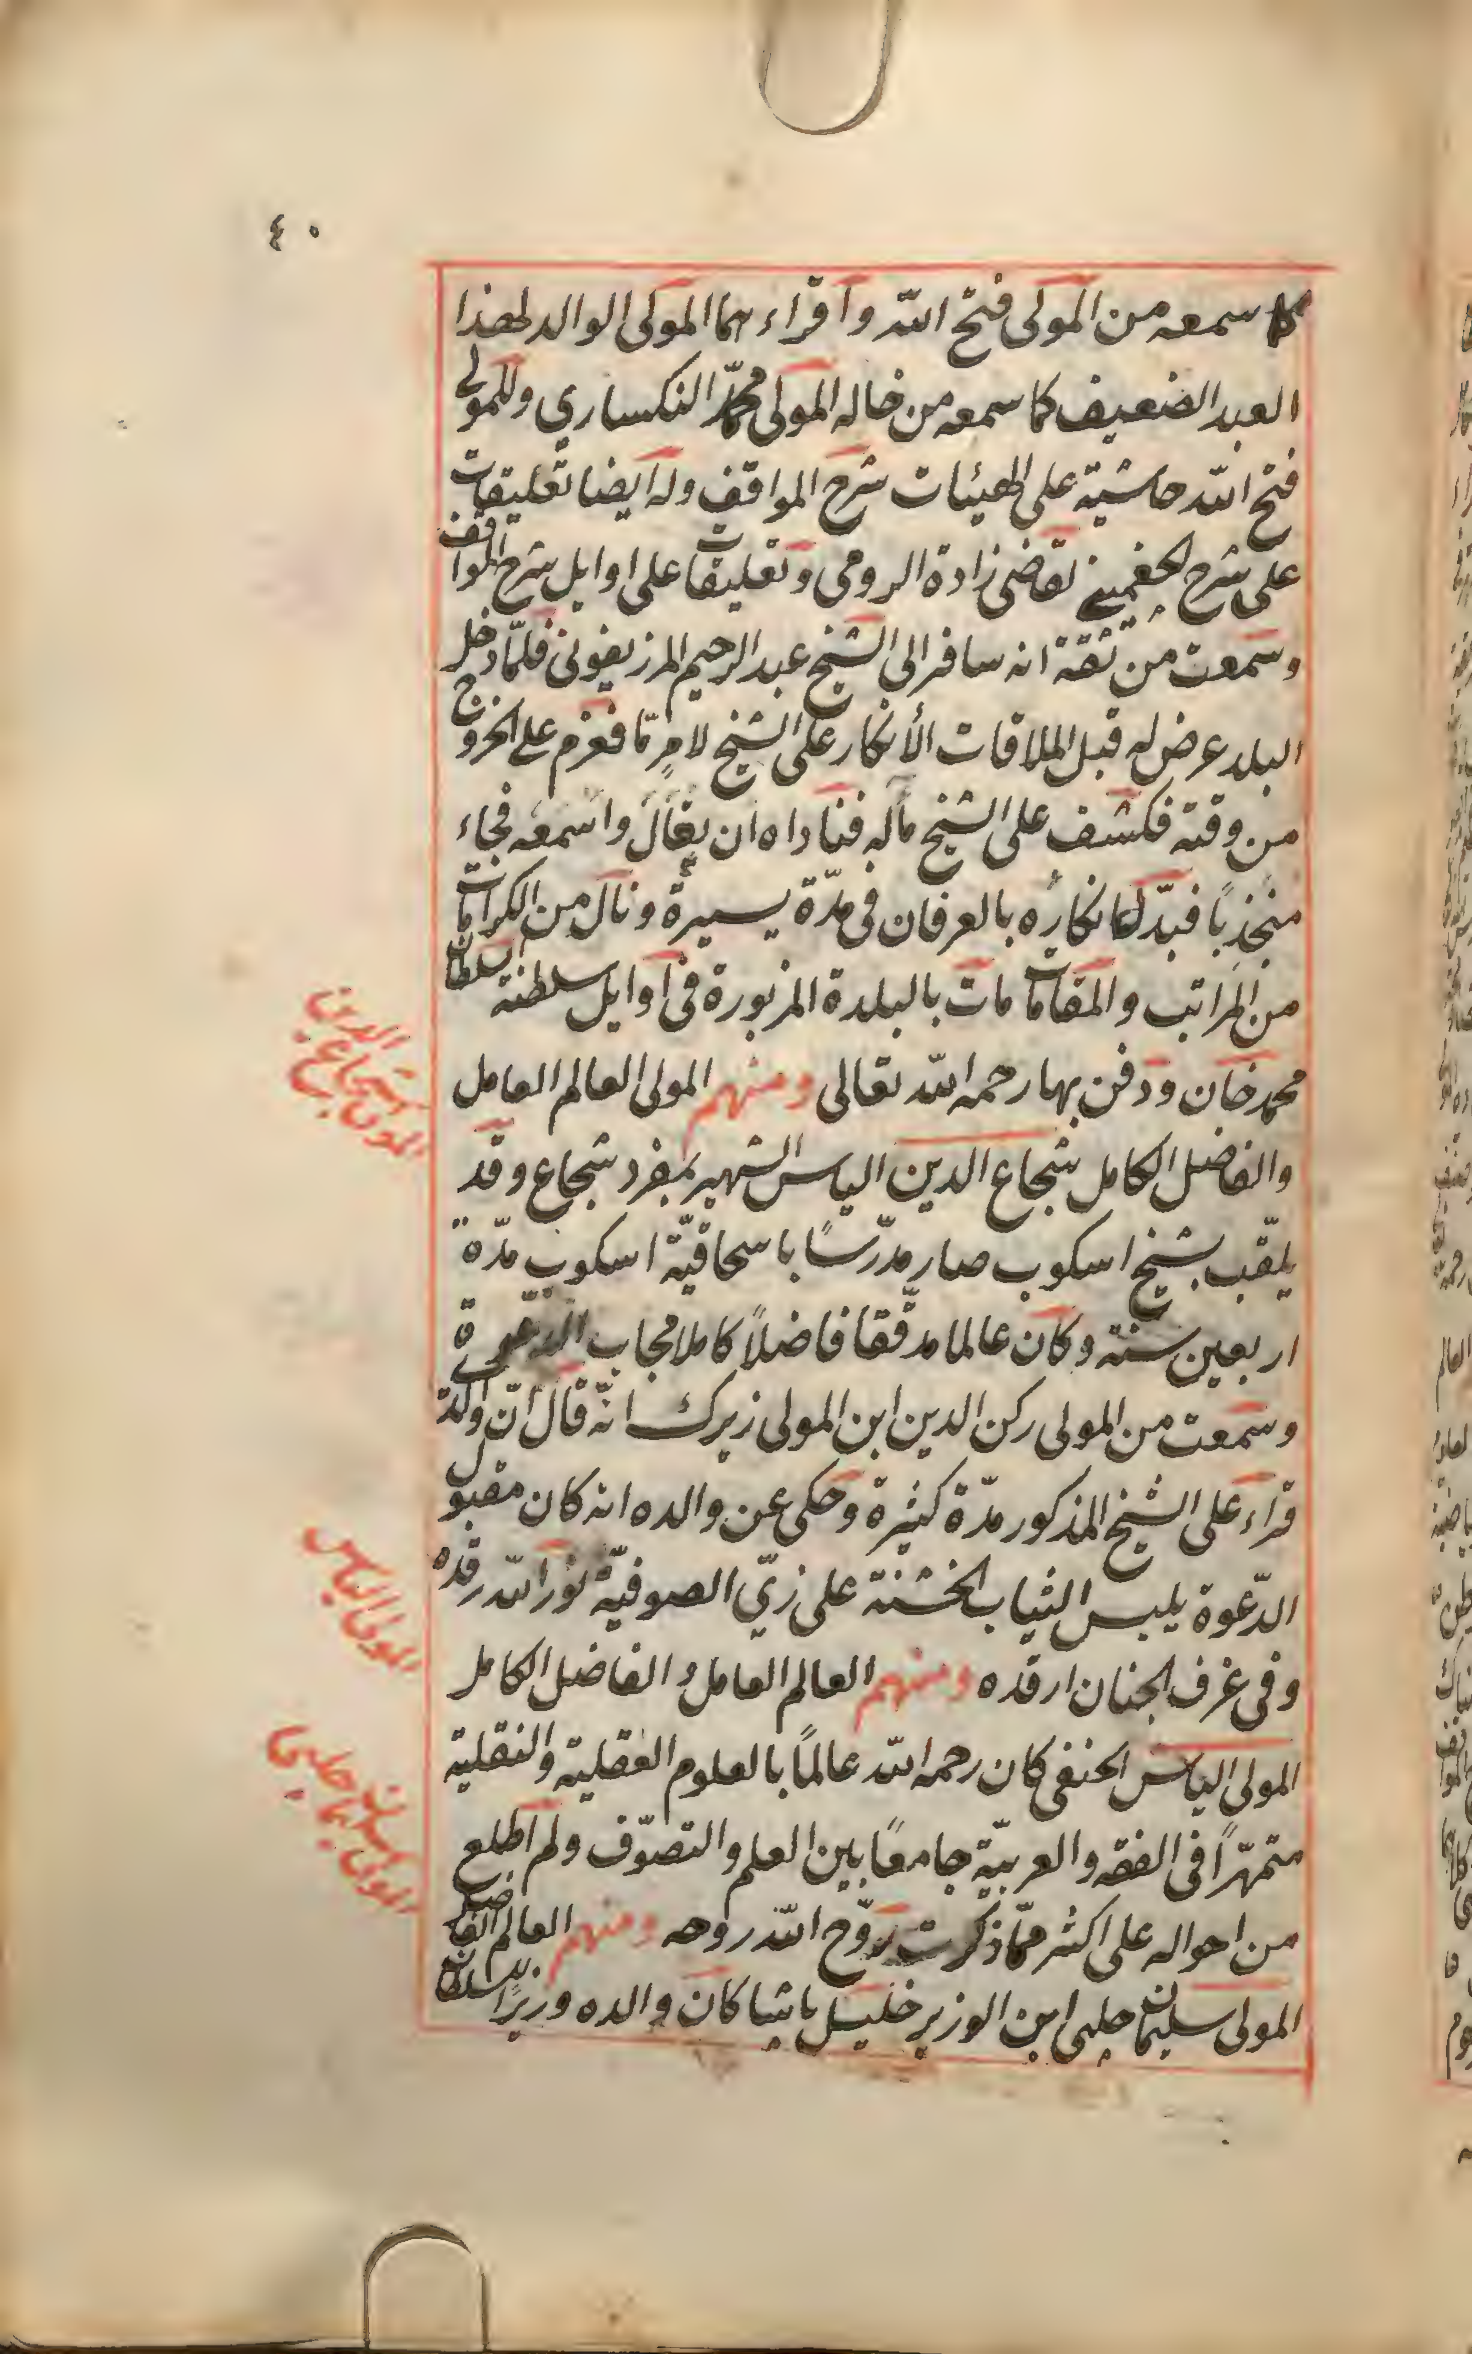 ٤٠
كما سمعه من المولى فتح الله وأقراءهما المولى الوالد لهذا
العبد الضعيف كما سمعه من خاله المولى محمد النكساري وللمولى
فتح الله حاشية على الهيئات شرح المواقف وله ايضا تعليقات
على شرح الجغميني لقاضي زادة الرومي وتعليقات على اوايل شرح المواقف
وسمعت من ثقة انه سافر الى الشيخ عبد الرحيم المرزيفوني فلمّا دخل
البلد عرض له قبل الملاقات الأنكار على الشيخ لامرٍ مّا فعزم على الخروج
من وقته فكشف على الشيخ مآله فناداه ان تعال واسمعه فجاء
منجذباً فبدّل انكاره بالعرفان في مدّة يسيرة ونال من الكرامات
من المراتب والمقامات مات بالبلدة المزبورة في أوايل سلطنة السلطان
محمد خان ودفن بها رحمه الله تعالى ومنهم المولى العالم العامل
والفاضل الكامل شجاع الدين الياس الشهير بمفرد شجاع وقد
يلقّب بشيخ اسكوب صار مدرّسًا باسحاقيّة اسكوب مدّة
اربعين سنة وكان عالما مدقّقا فاضلاً كاملا مجاب الدّعوة
وسمعت من المولى ركن الدين ابن المولى زيرك انّه قال انّ والده
قراء على الشيخ المذكور مدّة كثيرة وحكى عن والده انه كان مقبول
الدّعوة يلبس الثياب الخشنة على زيّ الصوفيّة نوّر الله رقده
وفي غرف الجنان ارقده ومنهم العالم العامل والفاضل الكامل
المولى الياس الحنفى كان رحمه الله عالمًا بالعلوم العقلية والنقلية
متمهّرًا في الفقه والعربيّة جامعًا بين العلم والتصوّف ولم اطلع
من احواله على اكثر ممّا ذكرت روّح الله روحه ومنهم العالم الفاضل
المولى سليمان چلبى ابن الوزير خليل باشا كان والده وزيرًا للسلطان
المولى شجاع الدين
المولى الياس
المولى سليمان چلبي